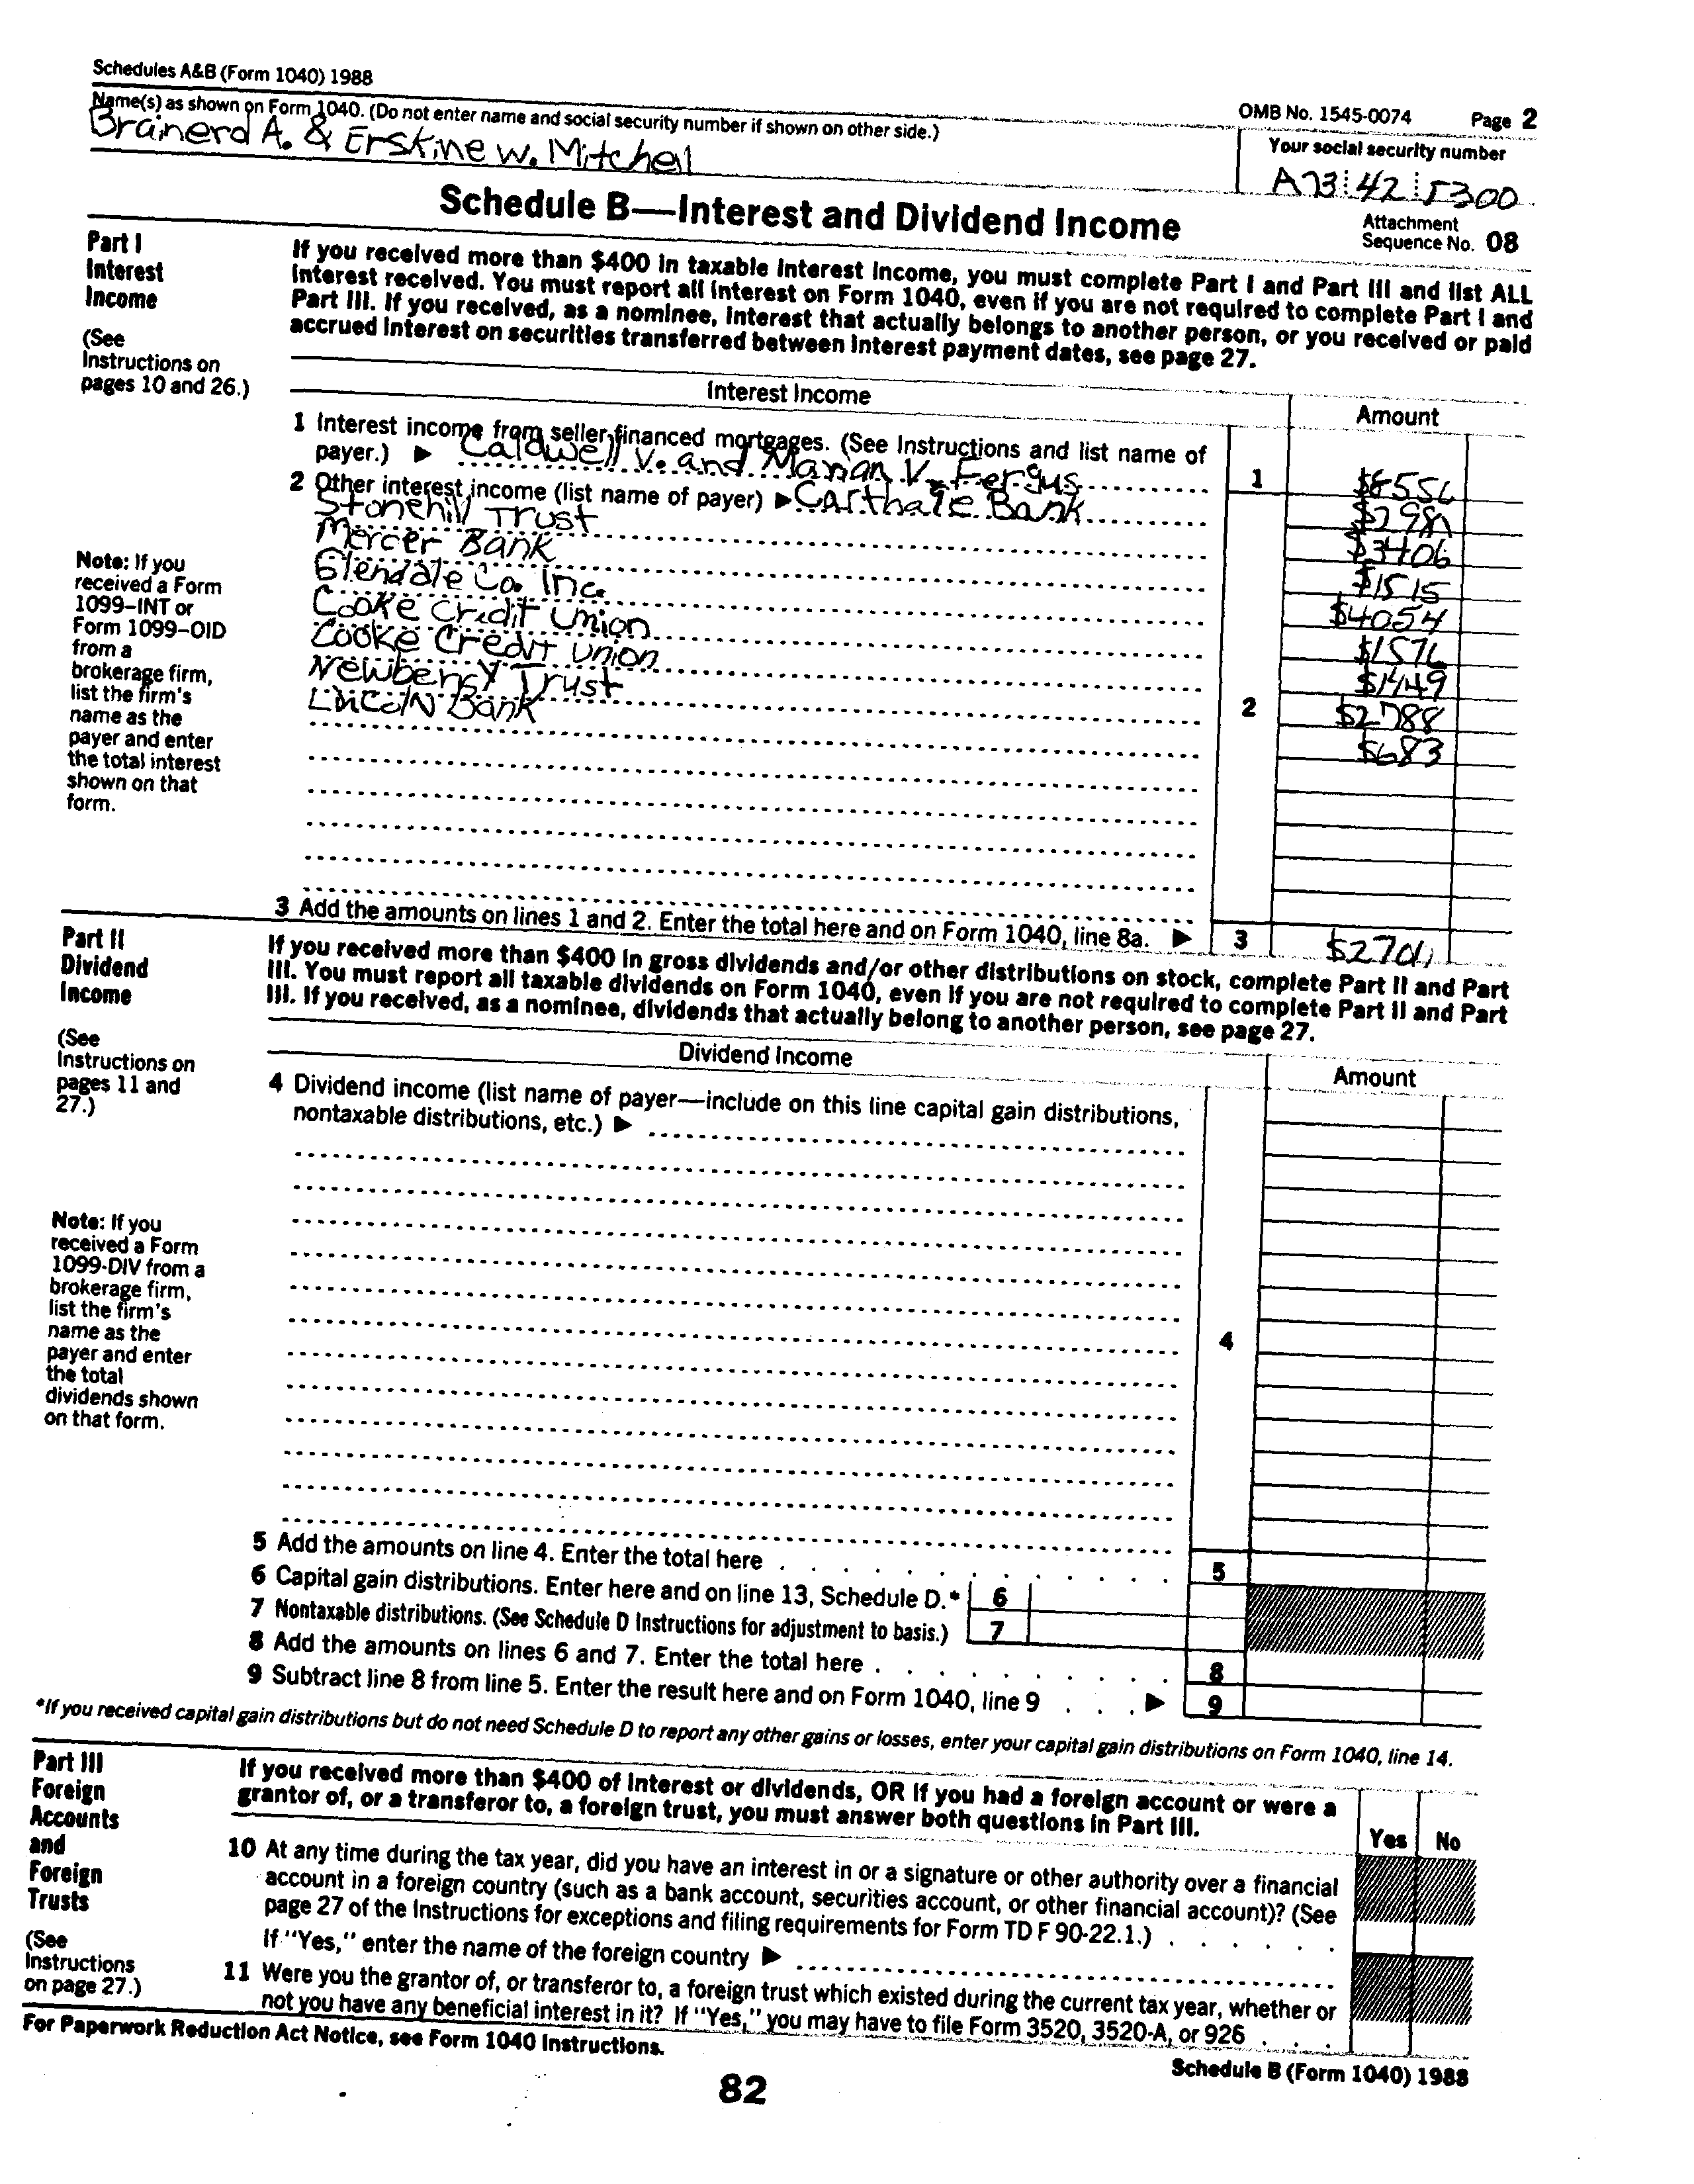 Schedules A&B (Form 1040) 1988
OMB No. 1545-0074 Page 2
Name(s) as shown on Form 1040. (Do not enter name and social security number if shown on other side.)
Brainerd A. & Erskine W. Mitchell
Your social security number
42 5300
Schedule B—Interest and Dividend Income
Attachment
Sequence No. 08
Part I
Interest
Income
(See
Instructions on
pages 10 and 26.)
If you received more than $400 in taxable interest income, you must complete Part I and Part III and list ALL
interest received. You must report all interest on Form 1040, even if you are not required to complete Part I and
Part III. If you received, as a nominee, interest that actually belongs to another person, or you received or paid
accrued interest on securities transferred between interest payment dates, see page 27.
Interest Income
Amount
1 Interest income from seller-financed mortgages. (See Instructions and list name of
payer.) ▶ Caldwell V. and Marian V. Fergus
1
2 Other interest income (list name of payer) ▶ Carthage Bank
Stonehill Trust $3406
Mercer Bank $1515
Glendale Co. Inc. $4054
Cooke Credit Union
Cooke Credit Union $1449
Newberry Trust 2 $2788
Lincoln Bank $683
Note: If you
received a Form
1099–INT or
Form 1099–OID
from a
brokerage firm,
list the firm's
name as the
payer and enter
the total interest
shown on that
form.
3 Add the amounts on lines 1 and 2. Enter the total here and on Form 1040, line 8a. ▶ 3
Part II
Dividend
Income
(See
Instructions on
pages 11 and
27.)
If you received more than $400 in gross dividends and/or other distributions on stock, complete Part II and Part
III. You must report all taxable dividends on Form 1040, even if you are not required to complete Part II and Part
III. If you received, as a nominee, dividends that actually belong to another person, see page 27.
Dividend Income
Amount
4 Dividend income (list name of payer—include on this line capital gain distributions,
nontaxable distributions, etc.) ▶
4
Note: If you
received a Form
1099-DIV from a
brokerage firm,
list the firm's
name as the
payer and enter
the total
dividends shown
on that form.
5 Add the amounts on line 4. Enter the total here 5
6 Capital gain distributions. Enter here and on line 13, Schedule D.* 6
7 Nontaxable distributions. (See Schedule D Instructions for adjustment to basis.) 7
8 Add the amounts on lines 6 and 7. Enter the total here 8
9 Subtract line 8 from line 5. Enter the result here and on Form 1040, line 9 ▶ 9
*If you received capital gain distributions but do not need Schedule D to report any other gains or losses, enter your capital gain distributions on Form 1040, line 14.
Part III
Foreign
Accounts
and
Foreign
Trusts
(See
Instructions
on page 27.)
If you received more than $400 of interest or dividends, OR if you had a foreign account or were a
grantor of, or a transferor to, a foreign trust, you must answer both questions in Part III.
Yes No
10 At any time during the tax year, did you have an interest in or a signature or other authority over a financial
account in a foreign country (such as a bank account, securities account, or other financial account)? (See
page 27 of the Instructions for exceptions and filing requirements for Form TD F 90-22.1.)
If "Yes," enter the name of the foreign country ▶
11 Were you the grantor of, or transferor to, a foreign trust which existed during the current tax year, whether or
not you have any beneficial interest in it? If "Yes," you may have to file Form 3520, 3520-A, or 926
For Paperwork Reduction Act Notice, see Form 1040 Instructions.
Schedule B (Form 1040) 1988
82